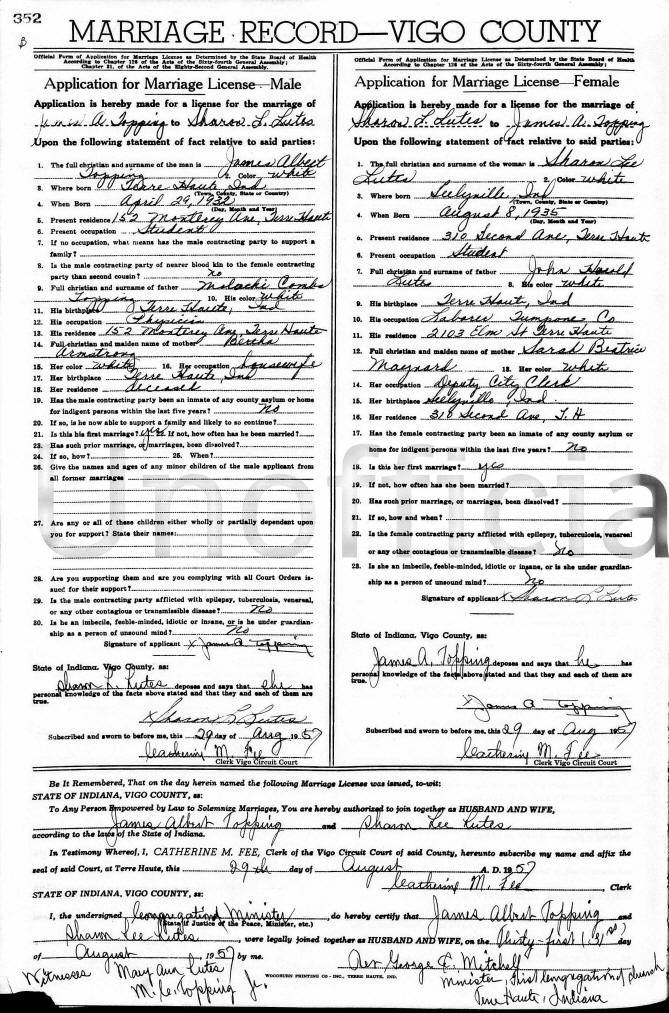 352
B
MARRIAGE RECORD—VIGO COUNTY
Official Form of Application for Marriage License as Determined by the State Board of Health
According to Chapter 126 of the Acts of the Sixty-fourth General Assembly;
Chapter 21, of the Acts of the Eighty-Second General Assembly.
Application for Marriage License—Male
Application is hereby made for a license for the marriage of
James A Topping to Sharon L. Lutes
Upon the following statement of fact relative to said parties:
1. The full christian and surname of the man is James Albert
Topping 2. Color white
3. Where born Terre Haute, Ind
(Town, County, State or Country)
4. When Born April 29, 1932
(Day, Month and Year)
5. Present residence 152 Monterey Ave, Terre Haute
6. Present occupation Student
7. If no occupation, what means has the male contracting party to support a
family?
8. Is the male contracting party of nearer blood kin to the female contracting
party than second cousin? no
9. Full christian and surname of father Malachi Combs
Topping 10. His color white
11. His birthplace Terre Haute, Ind
12. His occupation Physician
13. His residence 152 Monterey Ave, Terre Haute
14. Full christian and maiden name of mother Bertha
Armstrong
15. Her color white 16. Her occupation housewife
17. Her birthplace Terre Haute, Ind
18. Her residence deceased
19. Has the male contracting party been an inmate of any county asylum or home
for indigent persons within the last five years? No
20. If so, is he now able to support a family and likely to continue?
21. Is this his first marriage? yes 22. If not, how often has he been married?
23. Has such prior marriage, or marriages, been dissolved?
24. If so, how? 25. When?
26. Give the names and ages of any minor children of the male applicant from
all former marriages
27. Are any or all of these children either wholly or partially dependent upon
you for support? State their names:
28. Are you supporting them and are you complying with all Court Orders is-
sued for their support?
29. Is the male contracting party afflicted with epilepsy, tuberculosis, venereal,
or any other contagious or transmissible disease? No
30. Is he an imbecile, feeble-minded, idiotic or insane, or is he under guardian-
ship as a person of unsound mind? No
Signature of applicant X James A Topping
State of Indiana, Vigo County, ss:
Sharon L. Lutes deposes and says that she has
personal knowledge of the facts above stated and that they and each of them are
true.
X Sharon L Lutes
Subscribed and sworn to before me, this 29 day of Aug 1957
Catherine M. Fee
Clerk Vigo Circuit Court
Official Form of Application for Marriage License as Determined by the State Board of Health
According to Chapter 126 of the Acts of the Sixty-fourth General Assembly.
Application for Marriage License—Female
Application is hereby made for a license for the marriage of
Sharon L. Lutes to James A. Topping
Upon the following statement of fact relative to said parties:
1. The full christian and surname of the woman is Sharon Lee
Lutes 2. Color white
3. Where born Seelyville, Ind
(Town, County, State or Country)
4. When Born August 8, 1935
(Day, Month and Year)
5. Present residence 310 Second Ave, Terre Haute
6. Present occupation Student
7. Full christian and surname of father John Harold
Lutes 8. His color white
9. His birthplace Terre Haut, Ind
10. His occupation Laborer Tumpone Co
11. His residence 2103 Elm St Terre Haute
12. Full christian and maiden name of mother Sarah Beatrice
Maynard 13. Her color White
14. Her occupation Deputy City Clerk
15. Her birthplace Seelyville, Ind
16. Her residence 310 Second Ave, T. H
17. Has the female contracting party been an inmate of any county asylum or
home for indigent persons within the last five years? No
18. Is this her first marriage? yes
19. If not, how often has she been married?
20. Has such prior marriage, or marriages, been dissolved?
21. If so, how and when?
22. Is the female contracting party afflicted with epilepsy, tuberculosis, venereal
or any other contagious or transmissible disease? No
23. Is she an imbecile, feeble-minded, idiotic or insane, or is she under guardian-
ship as a person of unsound mind? No
Signature of applicant X Sharon L Lutes
State of Indiana, Vigo County, ss:
James A. Topping deposes and says that he has
personal knowledge of the facts above stated and that they and each of them are
true.
X James A Topping
Subscribed and sworn to before me, this 29 day of Aug 1957
Catherine M. Fee
Clerk Vigo Circuit Court
Unofficial
Be It Remembered, That on the day herein named the following Marriage License was issued, to-wit:
STATE OF INDIANA, VIGO COUNTY, ss:
To Any Person Empowered by Law to Solemnize Marriages, You are hereby authorized to join together as HUSBAND AND WIFE,
James Albert Topping and Sharon Lee Lutes
according to the laws of the State of Indiana.
In Testimony Whereof, I, CATHERINE M. FEE, Clerk of the Vigo Circuit Court of said County, hereunto subscribe my name and affix the
seal of said Court, at Terre Haute, this 29th day of August A. D. 1957
Catherine M. Fee Clerk
STATE OF INDIANA, VIGO COUNTY, ss:
I, the undersigned Congregational Minister, do hereby certify that James Albert Topping and
(State if Justice of the Peace, Minister, etc.)
Sharon Lee Lutes, were legally joined together as HUSBAND AND WIFE, on the Thirty-first (31st) day
of August 1957 by me. Rev George E. Mitchell
WOODBURN PRINTING CO-INC., TERRE HAUTE, IND.
Minister, First Congregational Church
Terre Haute, Indiana
Witnesses Mary Ann Lutes
M. C. Topping Jr.